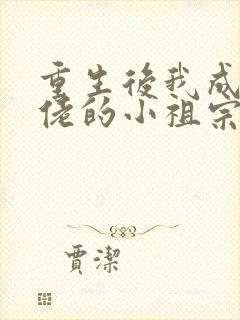 重生後我成
佬的小祖宗
賈潔